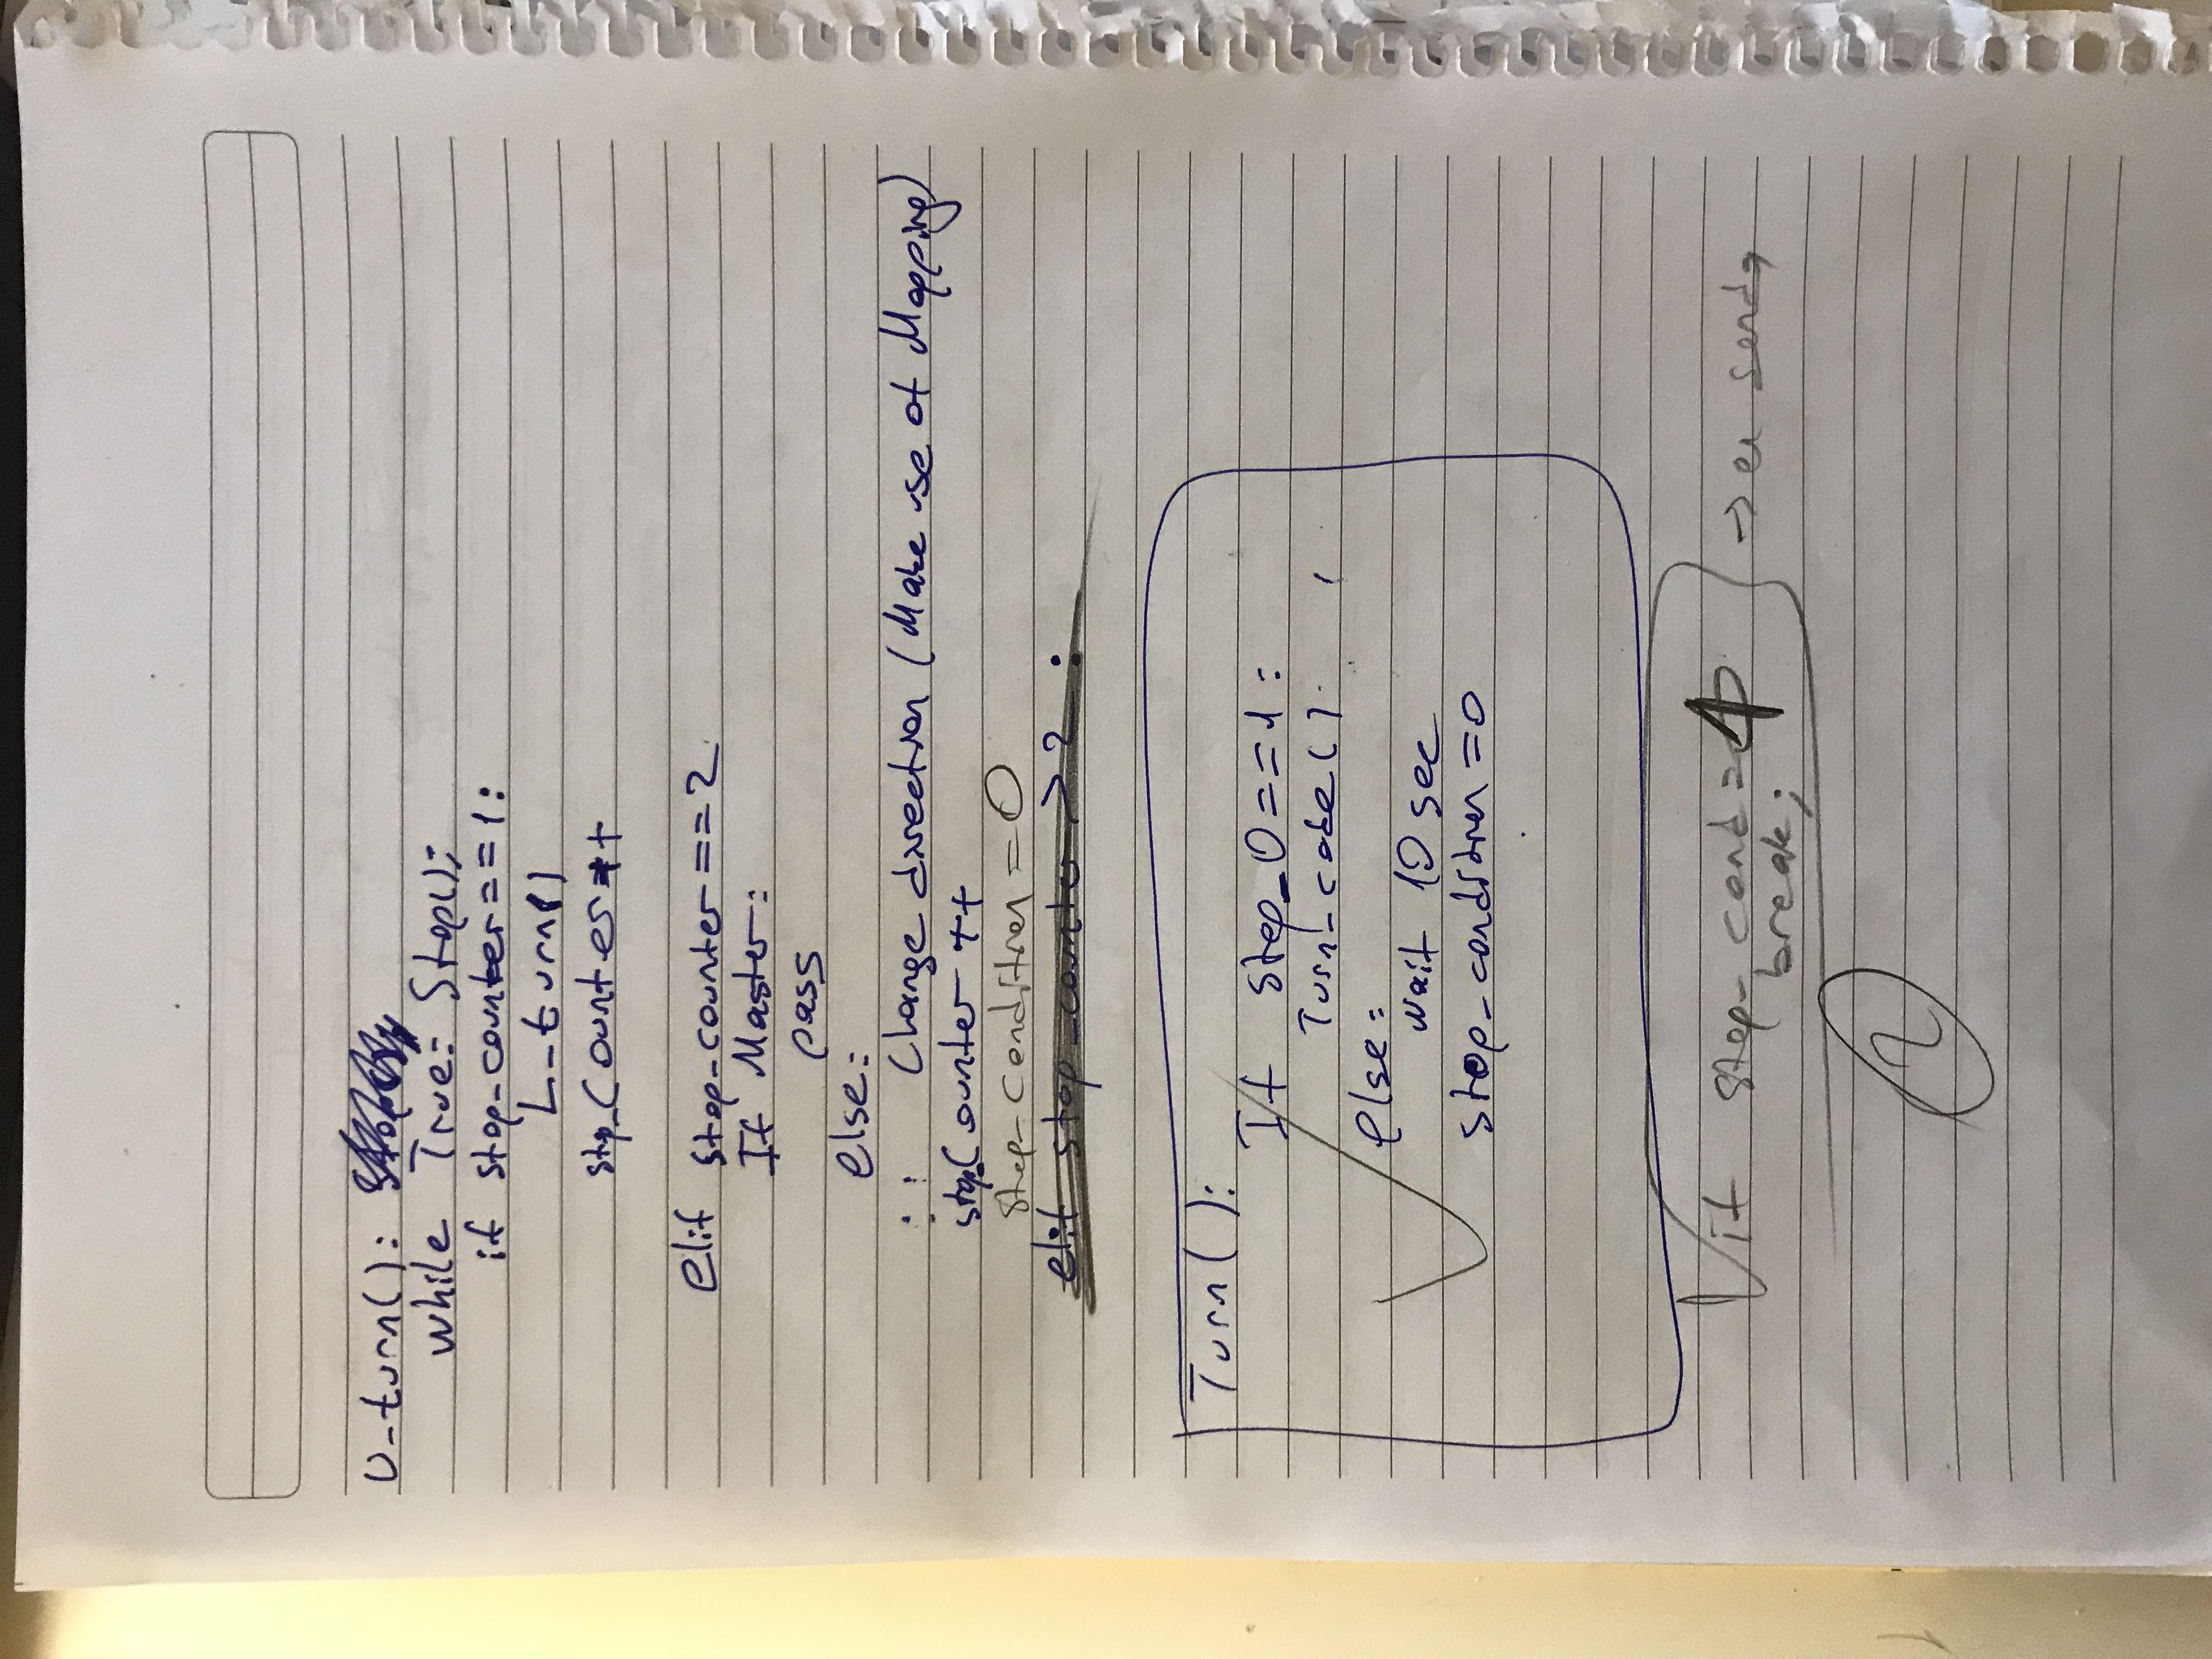 U-turn():
while True: Stop();
if stop-counter==1:
L-turn()
stp_Counter++
elif stop-counter==2
If Master:
pass
else:
Change direction (Make use of Mapping)
stop_Counter ++
stop-condition=0
elif stop_counter >2 :
Turn():
If step_0==1:
Turn-code()
else:
wait 10 sec
stop-condition=0
if stop-cond=1
break;
→ en sonda
2